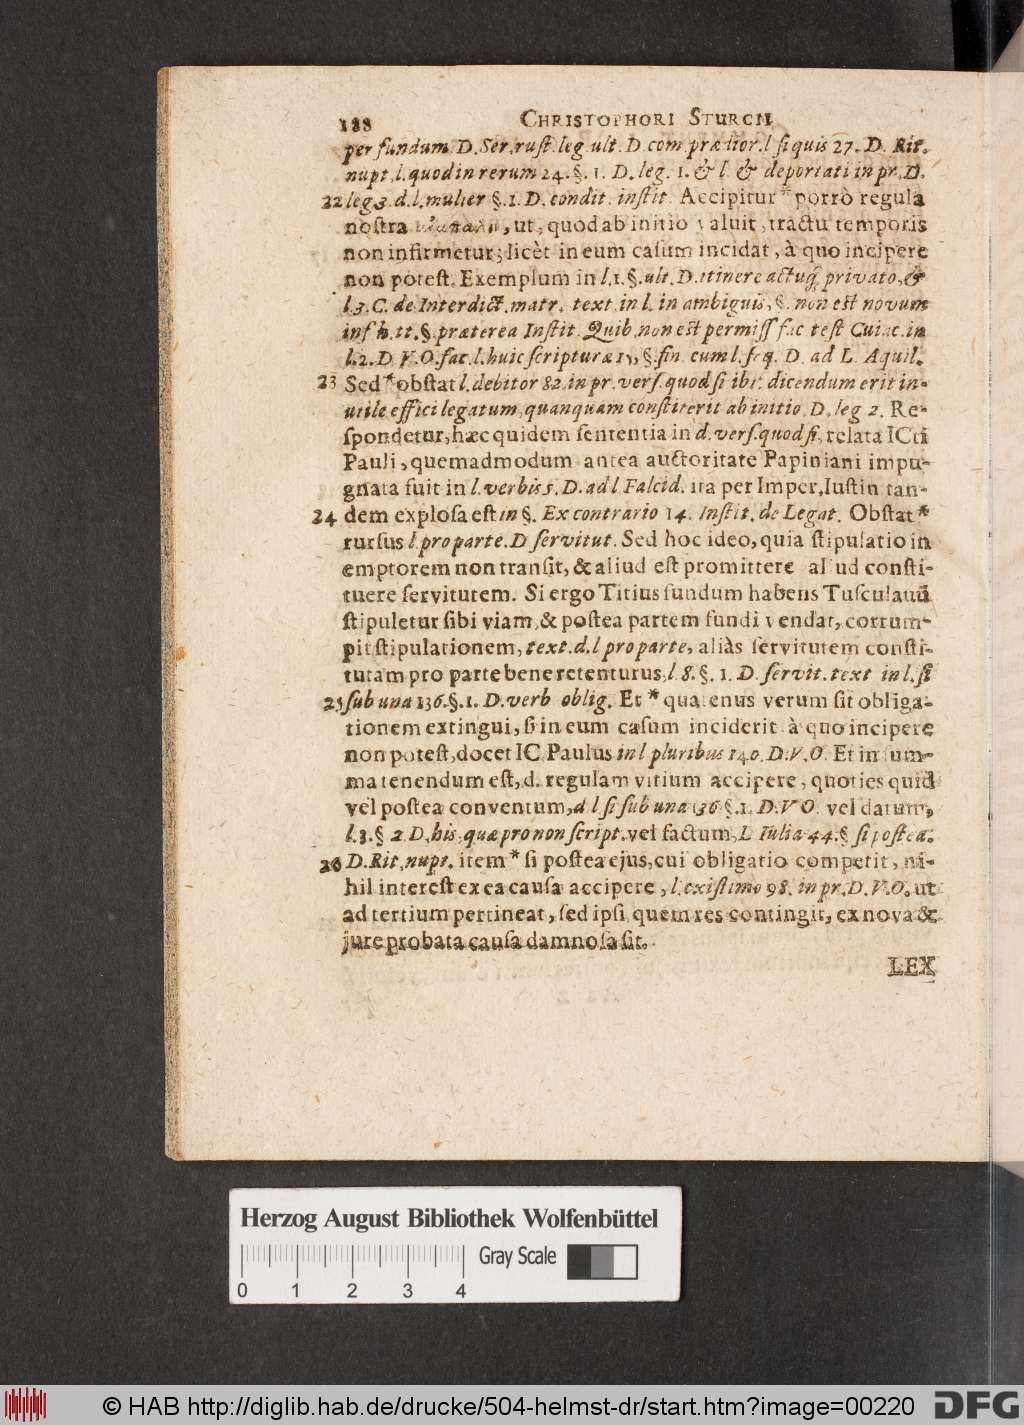 188 CHRISTOPHORI STURCII
per fundum. D. Ser. rust. leg. ult. D. com prædior. l si quis 27. D. Rit.
nupt. l. quod in rerum 24. §. 1. D. leg. 1. & l. & deportati in pr. D.
22 leg 3. d. l. mulier §. 1. D. condit. instit. Accipitur * porrò regula
nostra, ut, quod ab initio valuit, tractu temporis
non infirmetur; licèt in eum casum incidat, à quo incipere
non potest. Exemplum in l. 1. §. ult. D. itinere actuq; privato, &
l. 3. C. de Interdict. matr. text. in l. in ambiguis, §. non est novum
inf h. tt. §. præterea Instit. Quib. non est permiss fac test Cuiac. in
l. 2. D. V. O. fac. l. huic scripturæ §. fin. cum l. seq. D. ad L. Aquil.
23 Sed * obstat l. debitor 82. in pr. vers. quod si ibi: dicendum erit in-
utile effici legatum, quanquam constiterit ab initio. D. leg 2. Re-
spondetur, hæc quidem sententia in d. vers. quod si, relata ICti
Pauli, quemadmodum antea auctoritate Papiniani impu-
gnata fuit in l. verbis 5. D. ad l Falcid. ita per Imper. Iustin tan-
24 dem explosa est in §. Ex contrario 14. Instit. de Legat. Obstat *
rursus l. pro parte. D servitut. Sed hoc ideo, quia stipulatio in
emptorem non transit, & aliud est promittere aliud consti-
tuere servitutem. Si ergo Titius fundum habens Tusculanū
stipuletur sibi viam, & postea partem fundi vendat, corrum-
pit stipulationem, text. d. l pro parte, aliàs servitutem consti-
tutam pro parte bene retenturus, l. 8. §. 1. D. servit. text in l. si
25 sub una 136. §. 1. D. verb oblig. Et * quatenus verum sit obliga-
tionem extingui, si in eum casum inciderit à quo incipere
non potest, docet IC Paulus in l pluribus 140. D. V. O. Et in sum-
ma tenendum est, d. regulam vitium accipere, quoties quid
vel postea conventum, d l si sub una 136 §. 1. D. V O. vel datum,
l. 3. § 2. D. his, quæ pro non script. vel factum, L Iulia 44. § si postea.
26 D. Rit. nupt. item * si postea ejus, cui obligatio competit, ni-
hil interest ex ea causa accipere, l. existimo 98. in pr. D. V. O. ut
ad tertium pertineat, sed ipsi, quem res contingit, ex nova &
jure probata causa damnosa sit.
LEX
Herzog August Bibliothek Wolfenbüttel
Gray Scale
0 1 2 3 4
© HAB http://diglib.hab.de/drucke/504-helmst-dr/start.htm?image=00220
DFG